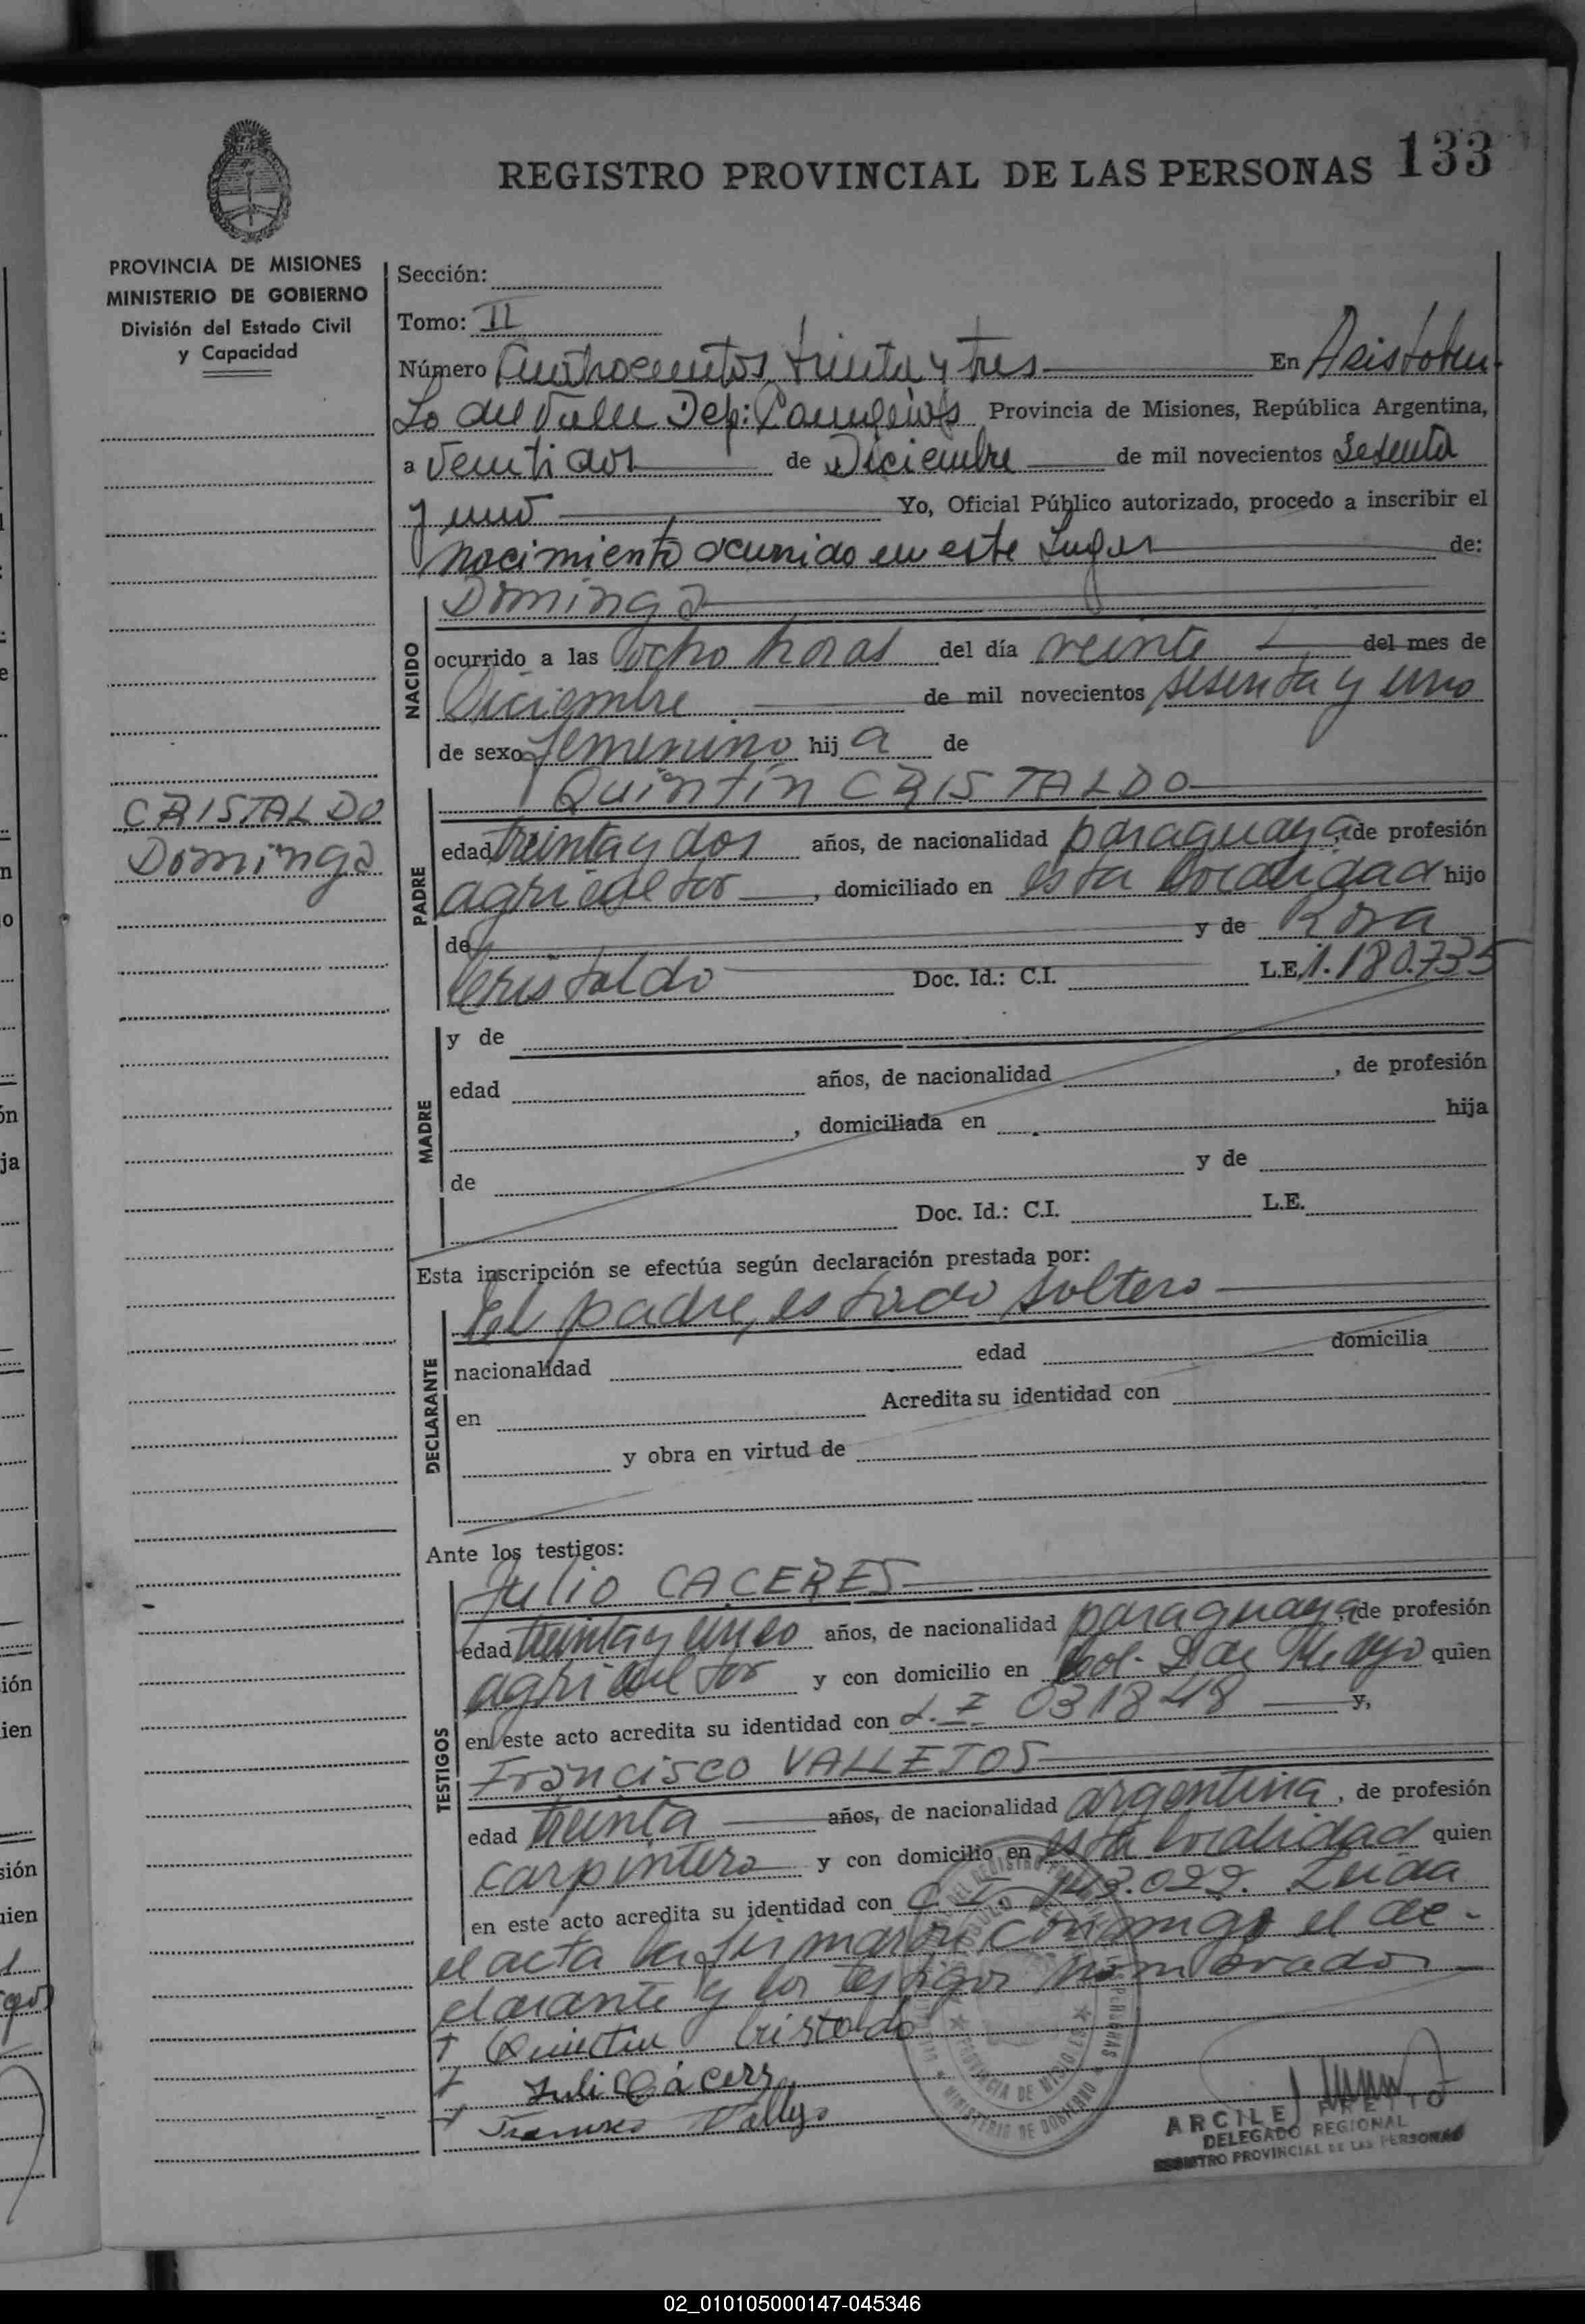 REGISTRO PROVINCIAL DE LAS PERSONAS 133
PROVINCIA DE MISIONES
MINISTERIO DE GOBIERNO
División del Estado Civil
y Capacidad
Sección:
Tomo: II
Número Cuatrocientos treinta y tres En Aristobu-
lo del Valle Dep: Provincia de Misiones, República Argentina,
a Veintidos de Diciembre de mil novecientos Sesenta
y uno Yo, Oficial Público autorizado, procedo a inscribir el
Nacimiento ocurrido en este Lugar de:
NACIDO
Dominga
ocurrido a las ocho horas del día veinte del mes de
Diciembre de mil novecientos sesenta y uno
de sexo femenino hij a de
PADRE
Quintín CRISTALDO
CRISTALDO
Dominga
edad treinta y dos años, de nacionalidad paraguaya, de profesión
agricultor, domiciliado en esta localidad hijo
de y de Rosa
Cristaldo Doc. Id.: C.I. L.E. 1.180.735
MADRE
y de
edad años, de nacionalidad , de profesión
, domiciliada en hija
de y de
Doc. Id.: C.I. L.E.
Esta inscripción se efectúa según declaración prestada por:
DECLARANTE
El padre, estado soltero
nacionalidad edad domicilia
en Acredita su identidad con
y obra en virtud de
Ante los testigos:
TESTIGOS
Julio CACERES
edad treinta y cinco años, de nacionalidad paraguaya, de profesión
agricultor y con domicilio en Col. 2 de Mayo quien
en este acto acredita su identidad con 031848 y,
Francisco VALLEJOS
edad treinta años, de nacionalidad argentina, de profesión
carpintero y con domicilio en esta localidad quien
en este acto acredita su identidad con C.I. 143.022. Leida
el acta la firmaron conmigo el de-
clarante y los testigos nombrados
Quintin Cristaldo
Julio Cácers
Francisco Vallejo
PROVINCIA DE MISIONES
MINISTERIO DE GOBIERNO
DELEGADO REGIONAL
REGISTRO PROVINCIAL DE LAS PERSONAS
02_010105000147-045346